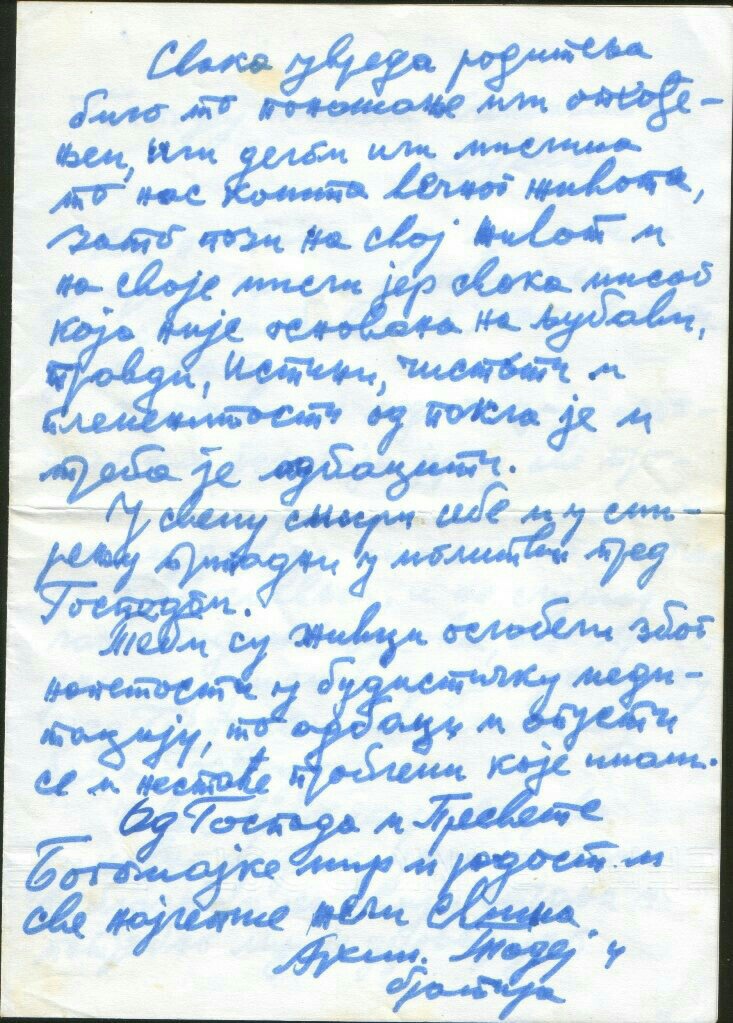 Свака увреда родитеља
било то понашање или опхође-
њем, или делом или мислима
то нас кошта вечног живота,
зато пази на свој живот и
на своје мисли јер свака мисао
која није основана на љубави,
правди, истини, чистоти и
племенитости од пакла је и
треба је одбацити.
У свему смири себе и у сми-
рењу припадни у молитви пред
Господом.
Теби су живци ослабели због
напетости у будистичку меди-
тацију, то одбаци и опусти
се и нестаће проблеми које имаш.
Од Господа и Пресвете
Богомајке мир и радост и
све најлепше жели свима
Архим. Тадеј и
братија